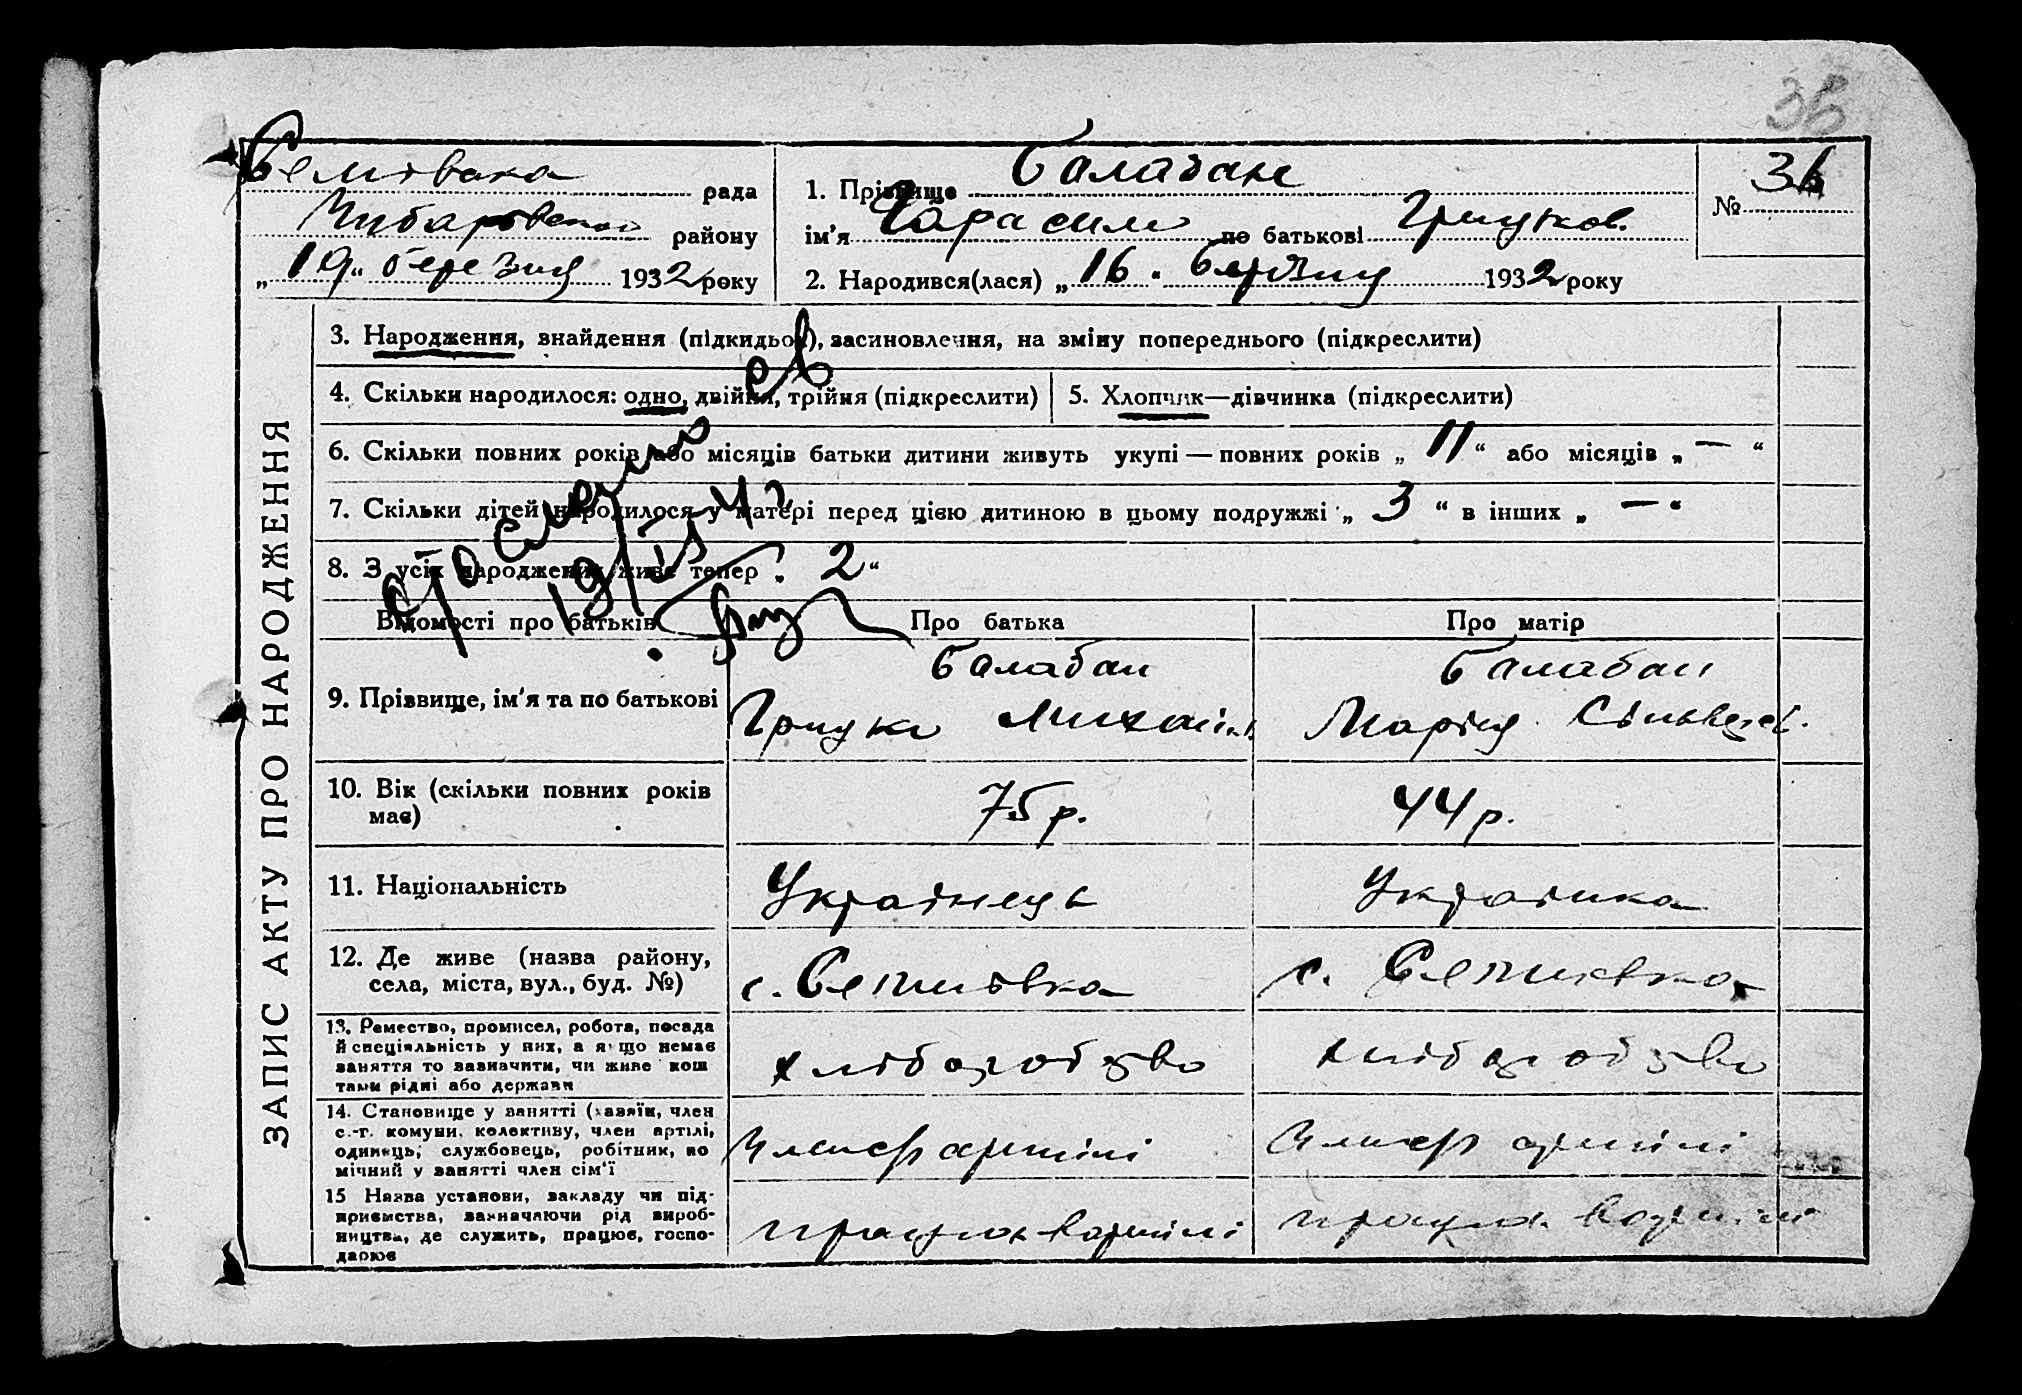 35
Семівська рада
Чубарівської району
„19“ березня 1932 року
1. Прізвище Балабан
ім’я Гарасим по батькові Грицков.
2. Народився(лася) „16“ березня 1932 року
№ 36
ЗАПИС АКТУ ПРО НАРОДЖЕННЯ
3. Народження, знайдення (підкидьок), засиновлення, на зміну попереднього (підкреслити)
4. Скільки народилося: одно, двійня, трійня (підкреслити)
5. Хлопчик—дівчинка (підкреслити)
6. Скільки повних років або місяців батьки дитини живуть укупі — повних років „11“ або місяців „—“
7. Скільки дітей народилося у матері перед цією дитиною в цьому подружжі „3“ в інших „—“
8. З усіх народжених живе тепер „2“
Відомості про батьків
Про батька
Про матір
9. Прізвище, ім’я та по батькові
Балабан
Грицко Михайл.
Балабан
Марія
10. Вік (скільки повних років
має)
75 р.
44 р.
11. Національність
Українець
Українка
12. Де живе (назва району,
села, міста, вул., буд. №)
с.
с.
13. Ремество, промисел, робота, посада
й спеціяльність у них, а якщо немає
заняття то зазначити, чи живе кош
тами рідні або держави
хліборобство
хліборобство
14. Становище у занятті (хазяїн, член
с.-г. комуни, колективу, член артілі,
одинець, службовець, робітник, по
мічний у занятті член сім’ї
Член с/г артілі
Член с/г артілі
15 Назва установи, закладу чи під-
приємства, зазначаючи рід вироб-
ництва, де служить, працює, госпо-
дарює
працює в артілі
працює в артілі